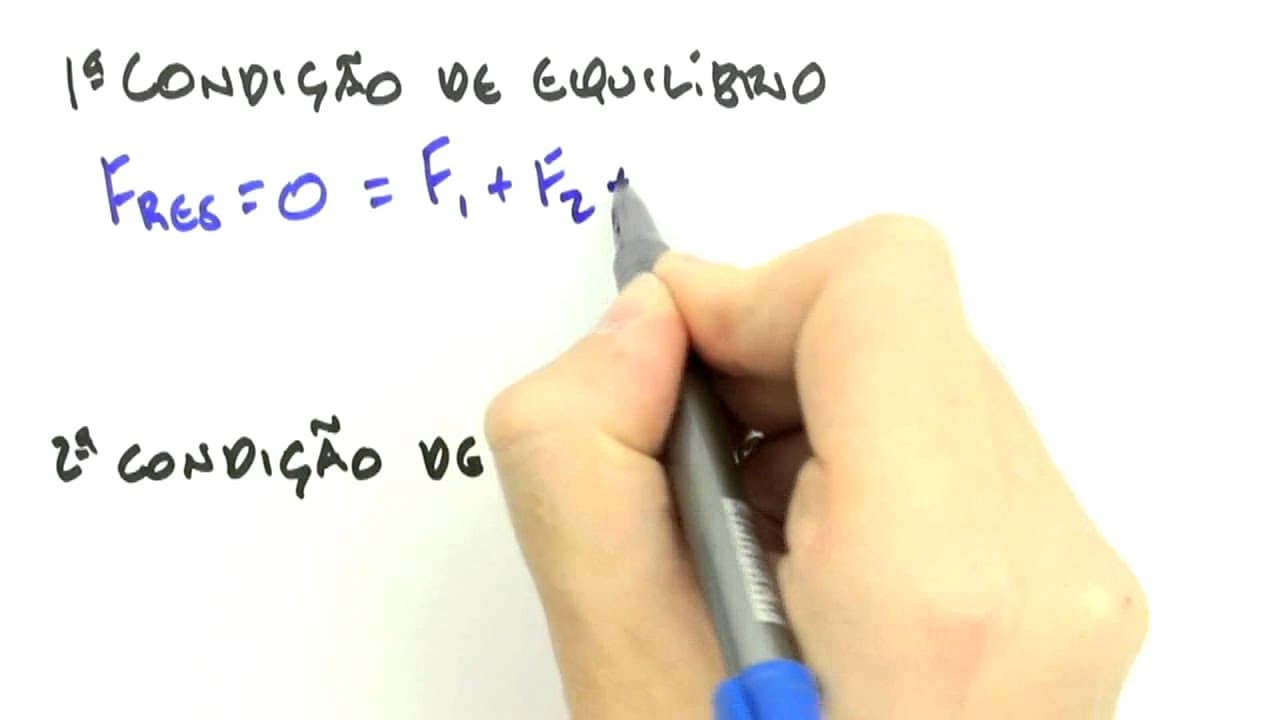 1ª CONDIÇÃO DE EQUILÍBRIO
FRES = 0 = F1 + F2 +
2ª CONDIÇÃO DE